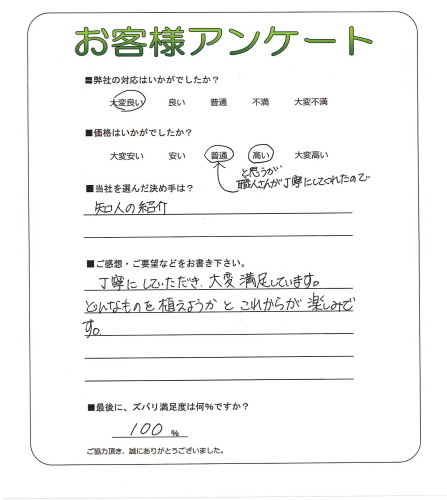 お客様アンケート
■弊社の対応はいかがでしたか？
大変良い 良い 普通 不満 大変不満
■価格はいかがでしたか？
大変安い 安い 普通 高い 大変高い
と思うが
職人さんが丁寧にしてくれたので
■当社を選んだ決め手は？
知人の紹介
■ご感想・ご要望などをお書き下さい。
丁寧にしていただき、大変満足しています。
どんなものを植えようかと これからが楽しみで
す。
■最後に、ズバリ満足度は何%ですか？
100 %
ご協力頂き、誠にありがとうございました。